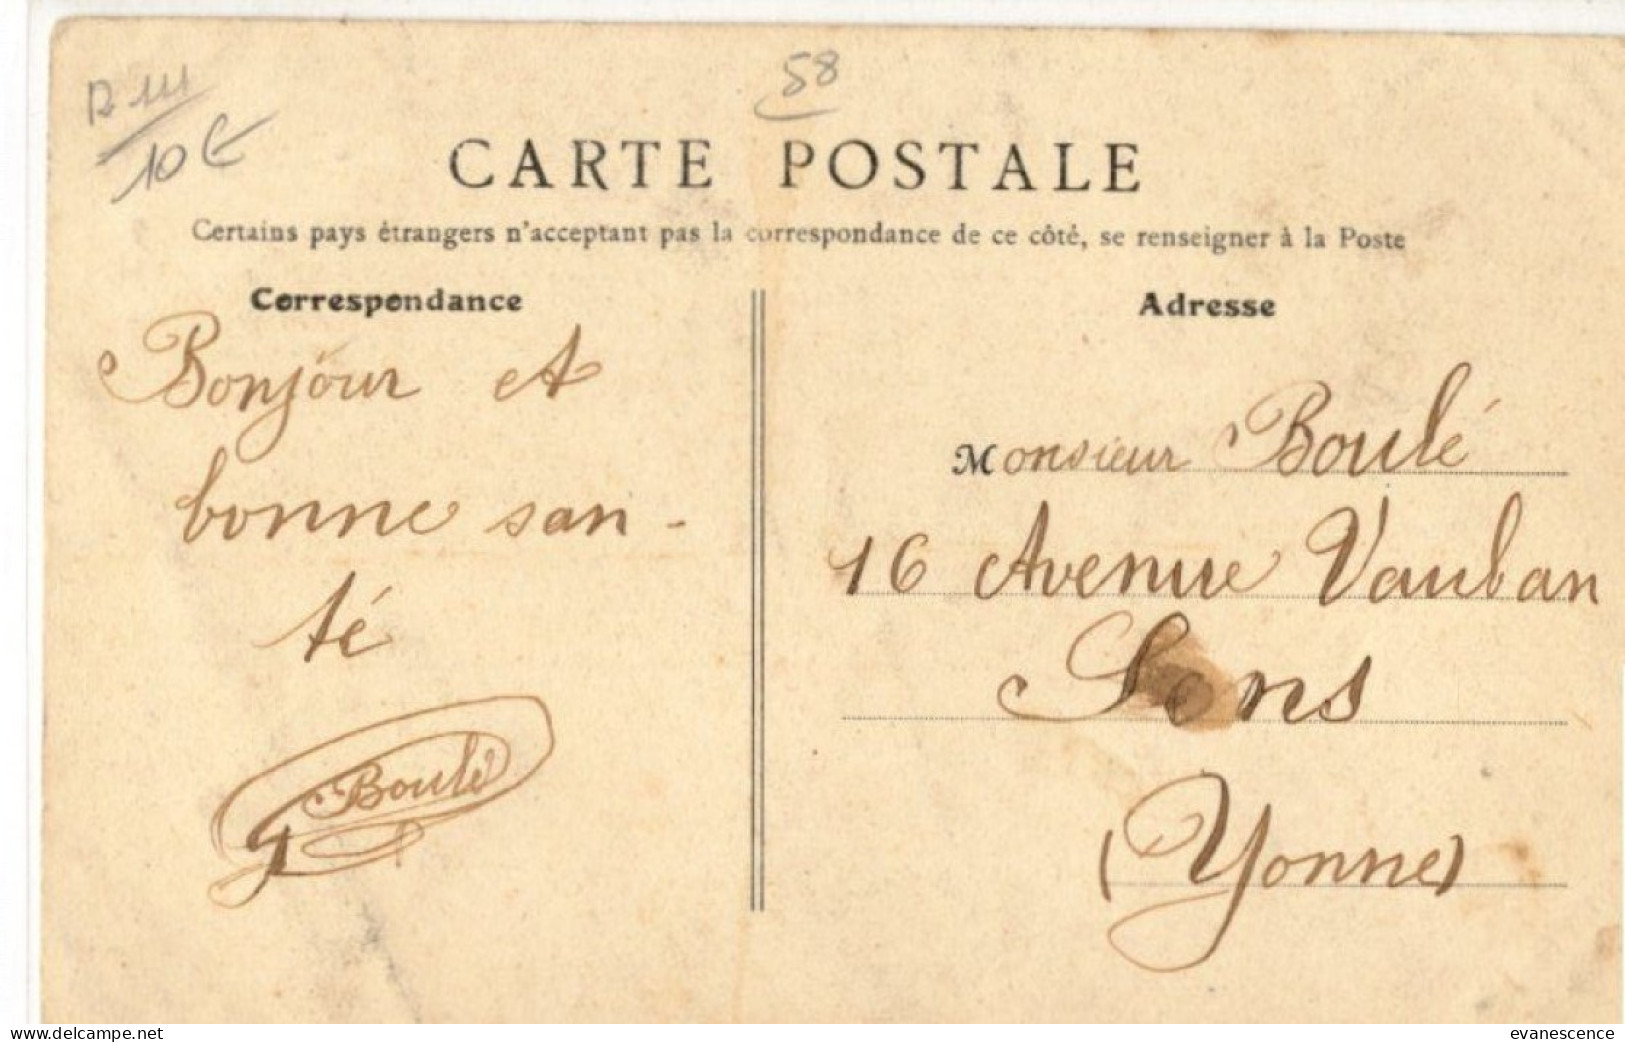 R 111
10 €
58
CARTE POSTALE
Certains pays étrangers n'acceptant pas la correspondance de ce côté, se renseigner à la Poste
Correspondance
Bonjour et
bonne san-
té
G Boulé
Adresse
Monsieur Boulé
16 Avenue Vauban
Sens
(Yonne)
www.delcampe.net
evanescence